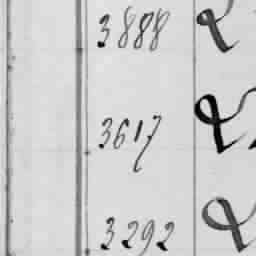 3888
3617
3292